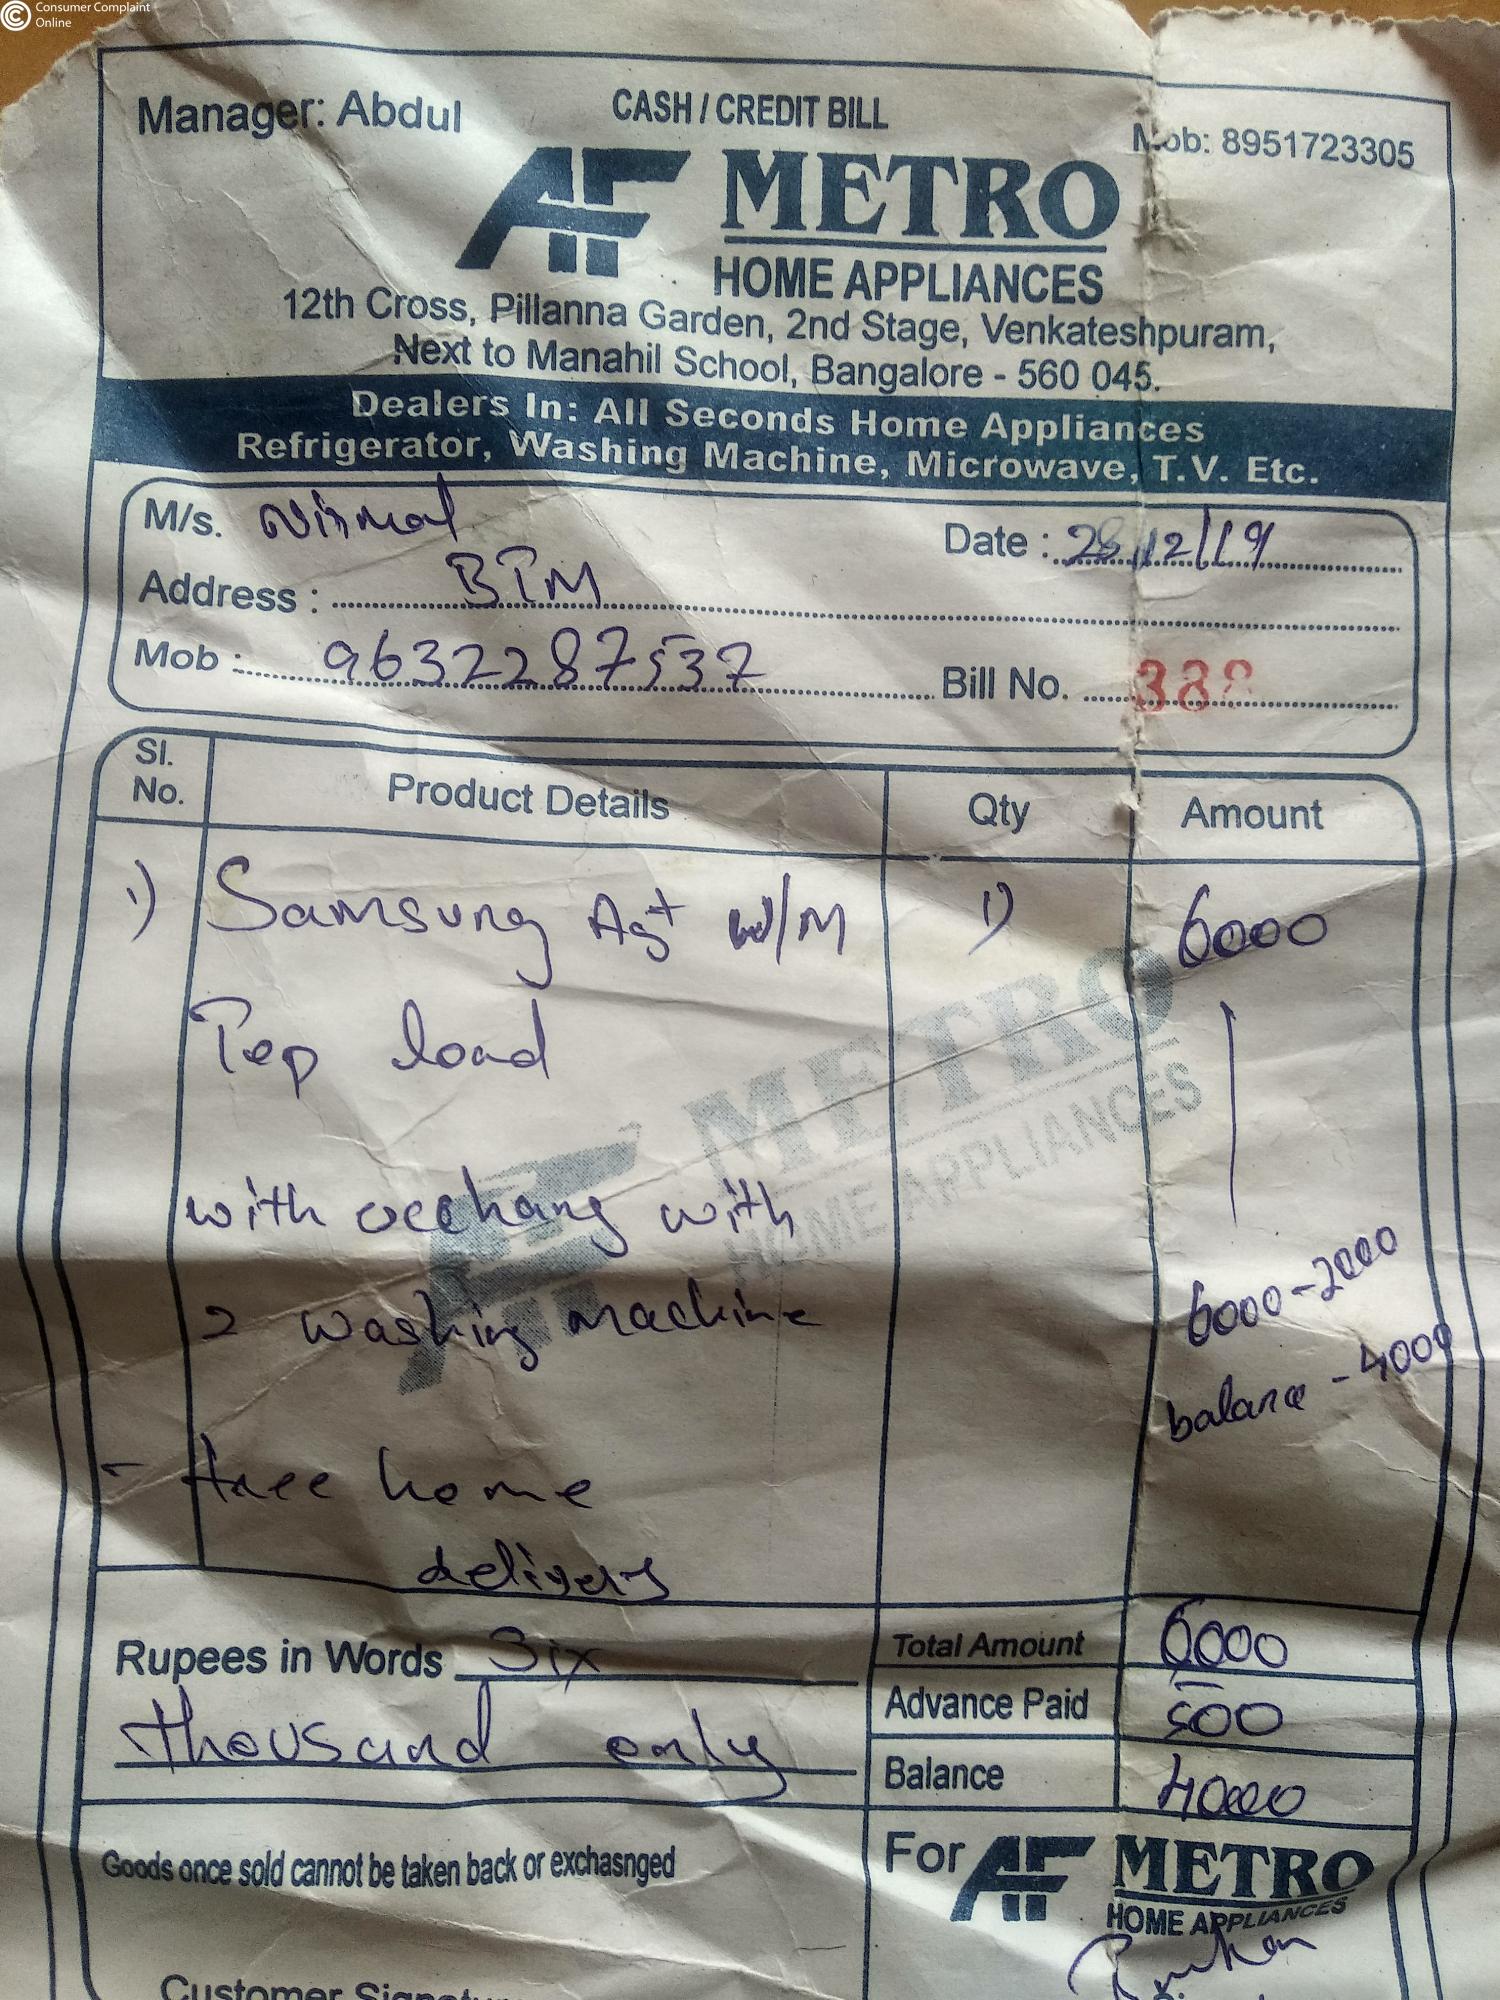 Consumer Complaint
Online
Manager: Abdul
CASH / CREDIT BILL
Mob: 8951723305
AF METRO
HOME APPLIANCES
12th Cross, Pillanna Garden, 2nd Stage, Venkateshpuram,
Next to Manahil School, Bangalore - 560 045.
Dealers In: All Seconds Home Appliances
Refrigerator, Washing Machine, Microwave, T.V. Etc.
M/s. Nirmal
Date : 28/12/19
Address : BTM
Mob : 9632287537
Bill No. 388
Sl. No. Product Details Qty Amount
1) Samsung Ag+ w/M 1) 6000
Top load
METRO
HOME APPLIANCES
with occhang with
2 washing machine
6000-2000
balance - 4000
- free home
delivery
Rupees in Words Six
thousand only
Total Amount 6000
Advance Paid 500
Balance 4000
Goods once sold cannot be taken back or exchasnged
For AF METRO
HOME APPLIANCES
Customer